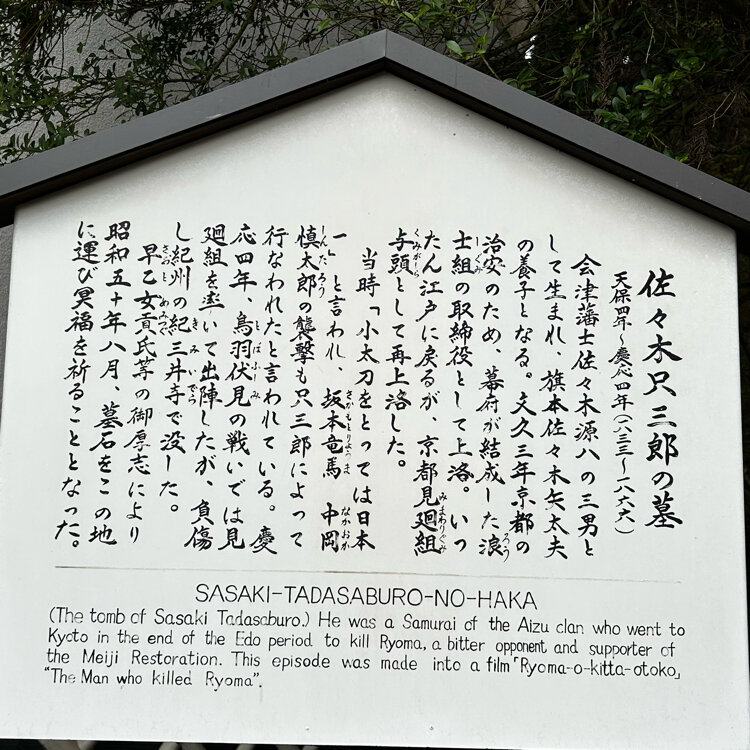 佐々木只三郎の墓
天保四年～慶応四年(一八三三～一八六八)
会津藩士佐々木源八の三男と
して生まれ、旗本佐々木矢太夫
の養子となる。文久三年京都の
治安のため、幕府が結成した浪
士組の取締役として上洛。いっ
たん江戸に戻るが、京都見廻組
与頭として再上洛した。
当時「小太刀をとっては日本
一」と言われ、坂本竜馬 中岡
慎太郎の襲撃も只三郎によって
行なわれたと言われている。慶
応四年、鳥羽伏見の戦いでは見
廻組を率いて出陣したが、負傷
し紀州の紀三井寺で没した。
早乙女貢氏等の御厚志により
昭和五十年八月、墓石をこの地
に運び冥福を祈ることとなった。
SASAKI-TADASABURO-NO-HAKA
(The tomb of Sasaki Tadasaburo.) He was a Samurai of the Aizu clan who went to
Kyoto in the end of the Edo period to kill Ryoma, a bitter opponent and supporter of
the Meiji Restoration. This episode was made into a film「Ryoma-o-kitta-otoko」
"The Man who killed Ryoma".